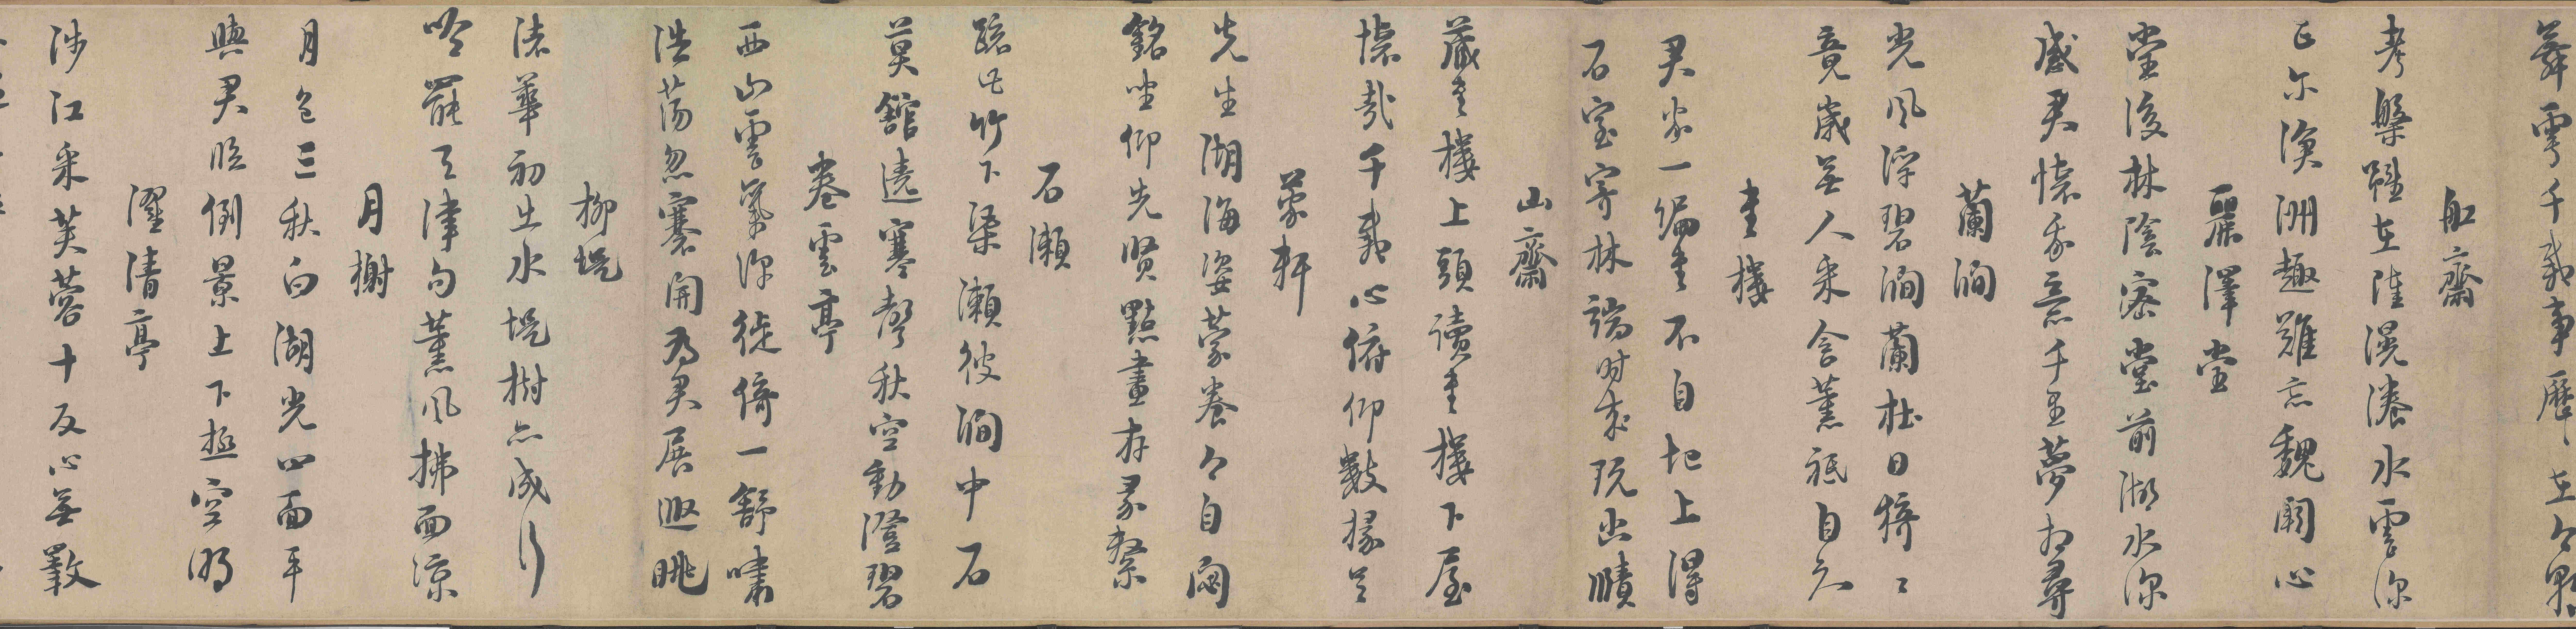 舞雩千載事歷〻在今
舡齋
考槃雖在陸滉瀁水雲深
正尔滄洲趣難忘魏闕心
麗澤堂
堂後林陰密堂前湖水深
感君懷我意千里夢相尋
蘭澗
光風浮碧澗蘭杜日猗〻
竟歲無人采含薰祇自知
書樓
君家一編書不自圯上得
石室寄林端時來玩幽賾
山齋
藏書樓上頭讀書樓下屋
懷哉千載心俯仰數椽足
蒙軒
先生湖海姿蒙養今自閟
銘坐仰先賢點畫存彖繫
石瀨
疏此竹下渠瀨彼澗中石
莫館遶寒聲秋空動澄碧
卷雲亭
西山雲氣深徙倚一舒嘯
浩蕩忽褰開為君展遐眺
柳堤
渚華初出水堤樹亦成行
吟罷天津句薰風拂面涼
月榭
月色三秋白湖光四面平
與君臨倒景上下極空明
濯清亭
涉江采芙蓉十反心無斁